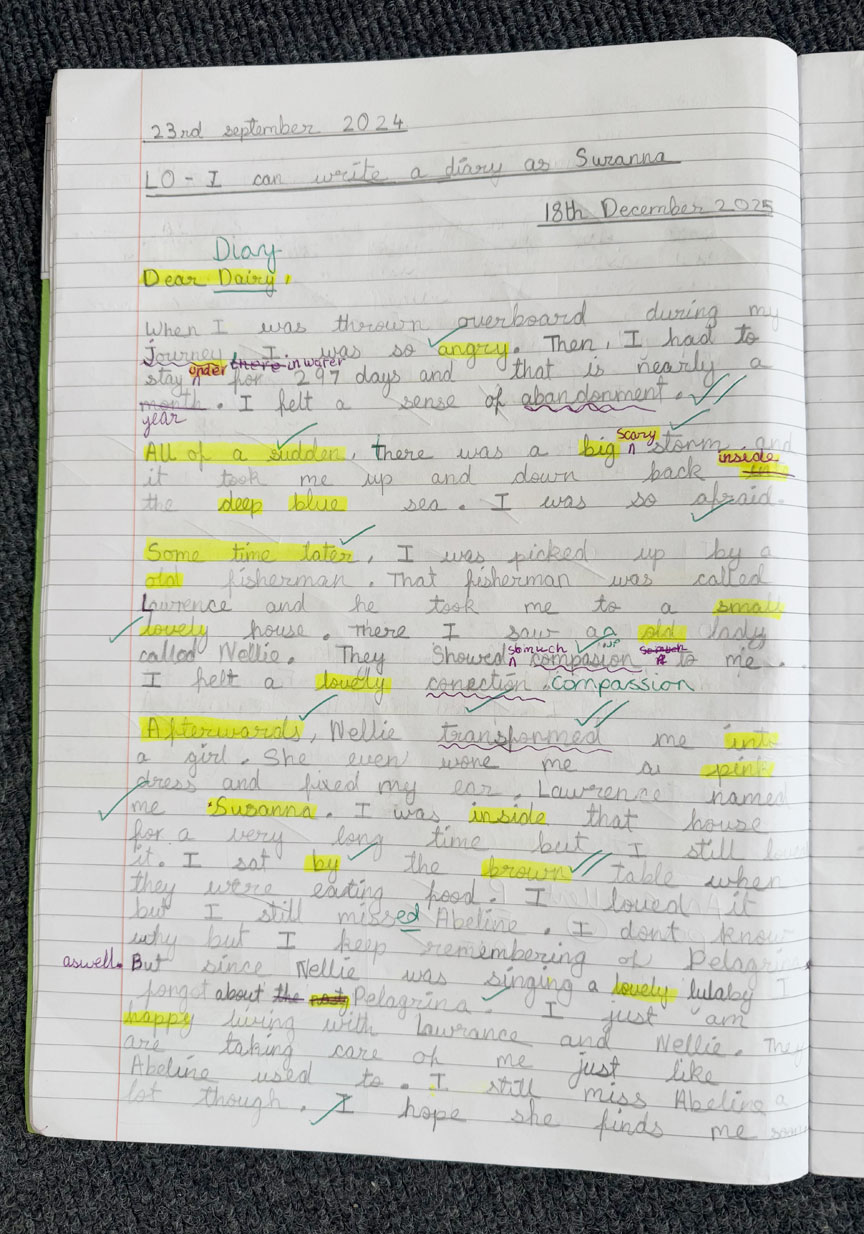 23rd september 2024
LO - I can write a diary as Suranna
18th December 2025
Diary
Dear Dairy,
When I was thrown overboard during my
journey, I was so angry. Then, I had to
under there in water
stay for 297 days and that is nearly a
month. I felt a sense of abandonment.
year
scary
All of a sudden, there was a big storm and
inside
it took me up and down back in
the deep blue sea. I was so afraid.
Some time later, I was picked up by a
old fisherman. That fisherman was called
Lawrence and he took me to a small
lovely house. There I saw an old lady
so much so much
called Nellie. They showed compasion to me.
I felt a lovely conection. compassion
Afterwards, Nellie transformed me into
a girl. She even wore me a pink
dress and fixed my ear. Lawrence named
me Susanna. I was inside that house
for a very long time but I still loved
it. I sat by the brown table when
they were eating food. I loved it
but I still missed Abeline. I dont know
why but I keep remembering of Pelagrina
aswell. But since Nellie was singing a lovely lulaby I
forgot about the Pelagrina. I just am
happy living with Lawrance and Nellie. They
are taking care of me just like
Abeline used to. I still miss Abeline a
lot though. I hope she finds me soon